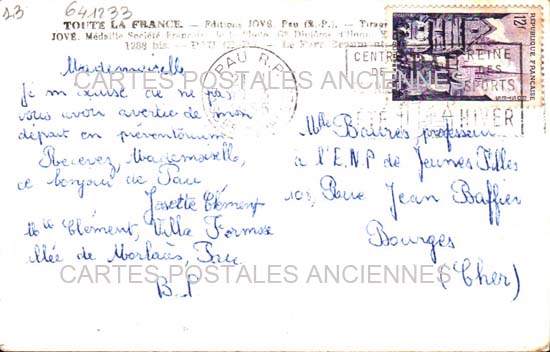 23 641233
TOUTE LA FRANCE. — Editions JOVÉ, Pau (B.-P.). — Tirage
JOVÉ, Médaille Société Française de Photo
1288 bis. — PAU
Mademoiselle
je m'excuse de ne pas
vous avoir avertie de mon
départ en préventorium.
Recevez, Mademoiselle,
ce bonjour de Pau
Josette Clément
Mlle Clément, Villa Formose
Allée de Morlaàs, Pau
B.P
PAU R.P.
CENTRE REINE
DE DES
SPORTS
HIVER
12F
REPUBLIQUE FRANÇAISE
Mlle Baurès professeur
à l'E.N.P de Jeunes Filles
Rue Jean Baffier
Bourges
(Cher)
CARTES POSTALES ANCIENNES
CARTES POSTALES ANCIENNES